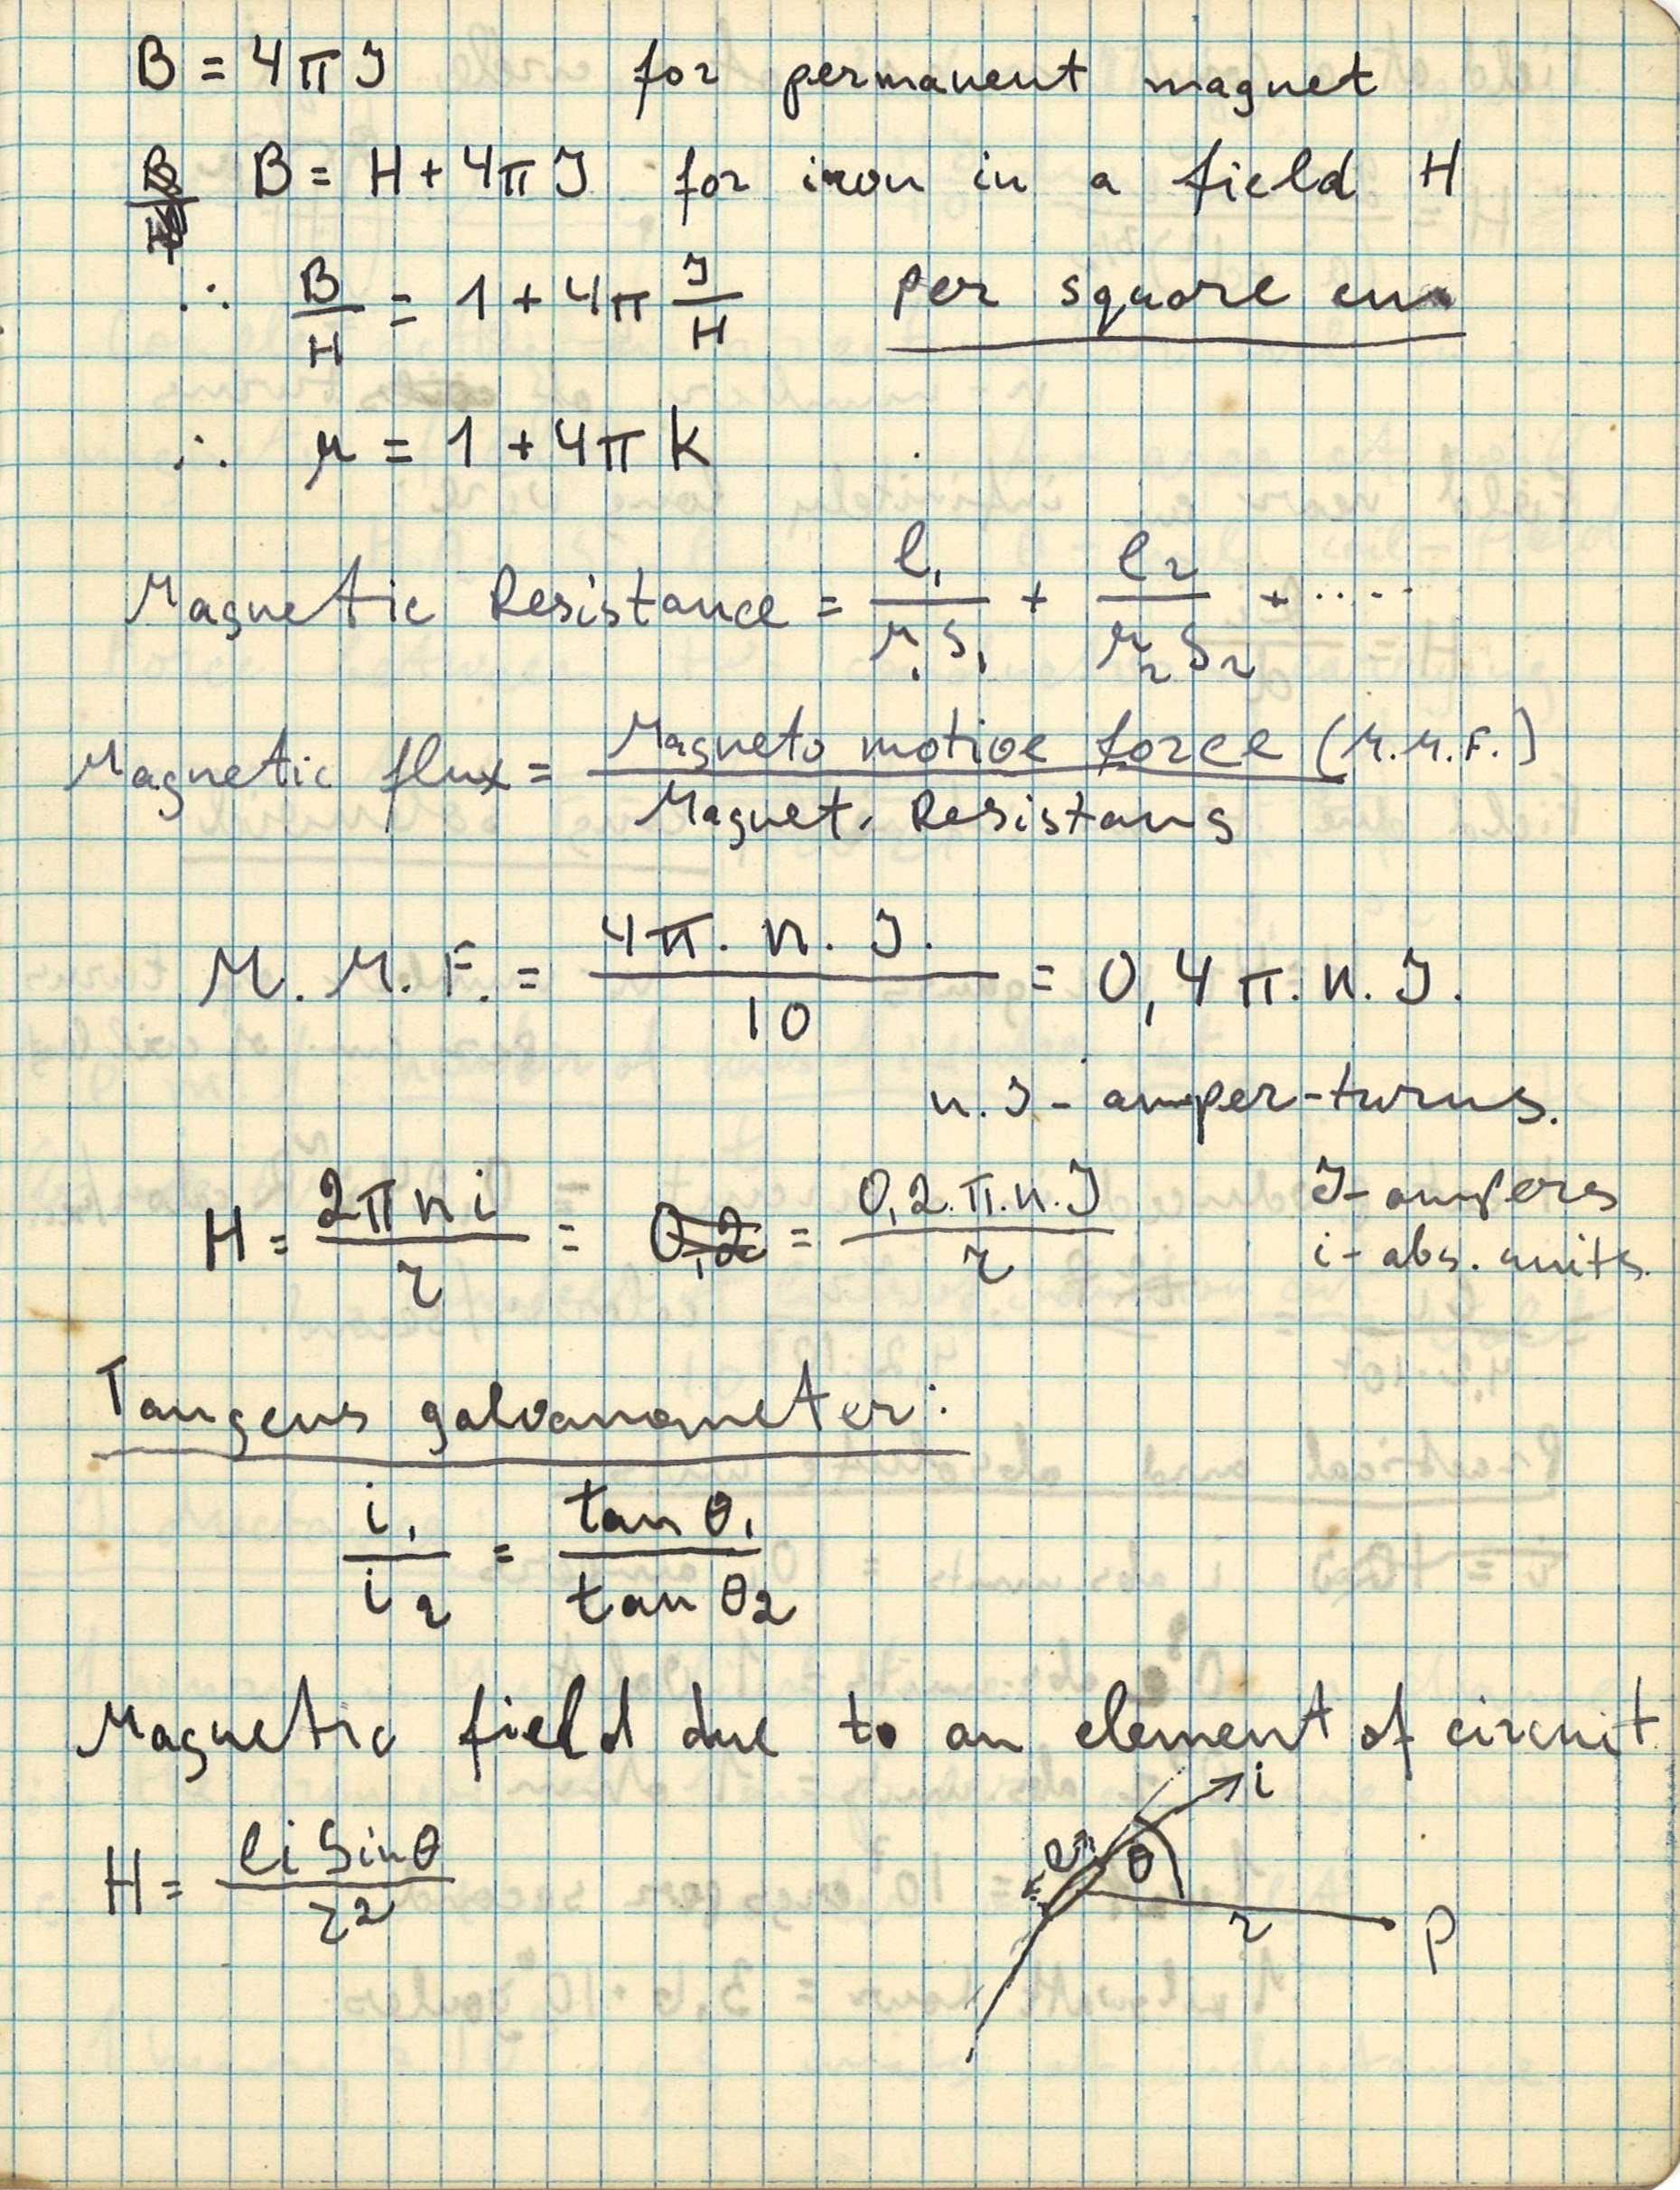 B = 4π J for permanent magnet
B = H + 4π J for iron in a field H
∴ B/H = 1 + 4π J/H per square cm
∴ μ = 1 + 4π k
Magnetic Resistance = l₁/μ₁S₁ + l₂/μ₂S₂ + .....
Magnetic flux = Magneto motive force (M.M.F.) / Magnet. Resistans
M. M. F. = 4π. n. J. / 10 = 0,4 π. n. J.
n. J - amper-turns.
H = 2π n i / r = 0,2 = 0,2. π. n. J / r
J - ampers
i - abs. units.
Tangens galvanometer:
i₁/i₂ = tan θ₁ / tan θ₂
Magnetic field due to an element of circuit
H = l i Sin θ / r²
i
l
θ
r
P